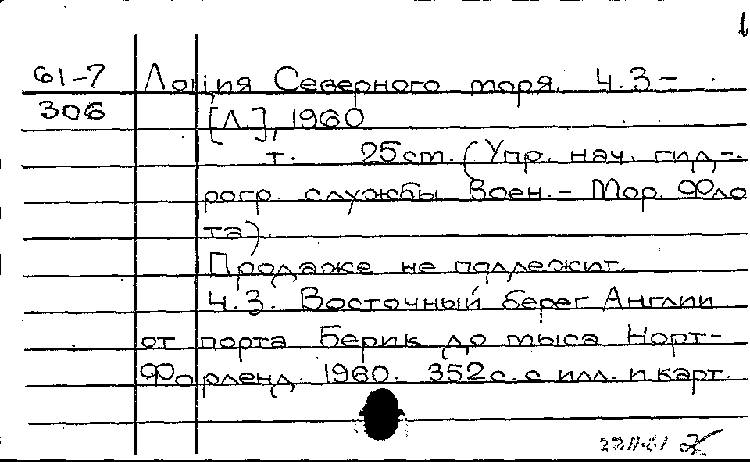 61-7 Лоция Северного моря. Ч.3-
306 [Л.], 1960
т. 25 см. (Упр. нач. гид-
рогр. службы Воен.-Мор. Фло
та).
Продаже не подлежит.
Ч.3. Восточный берег Англии
от порта Берик до мыса Норт-
Форленд. 1960. 352 с. с илл. и карт.